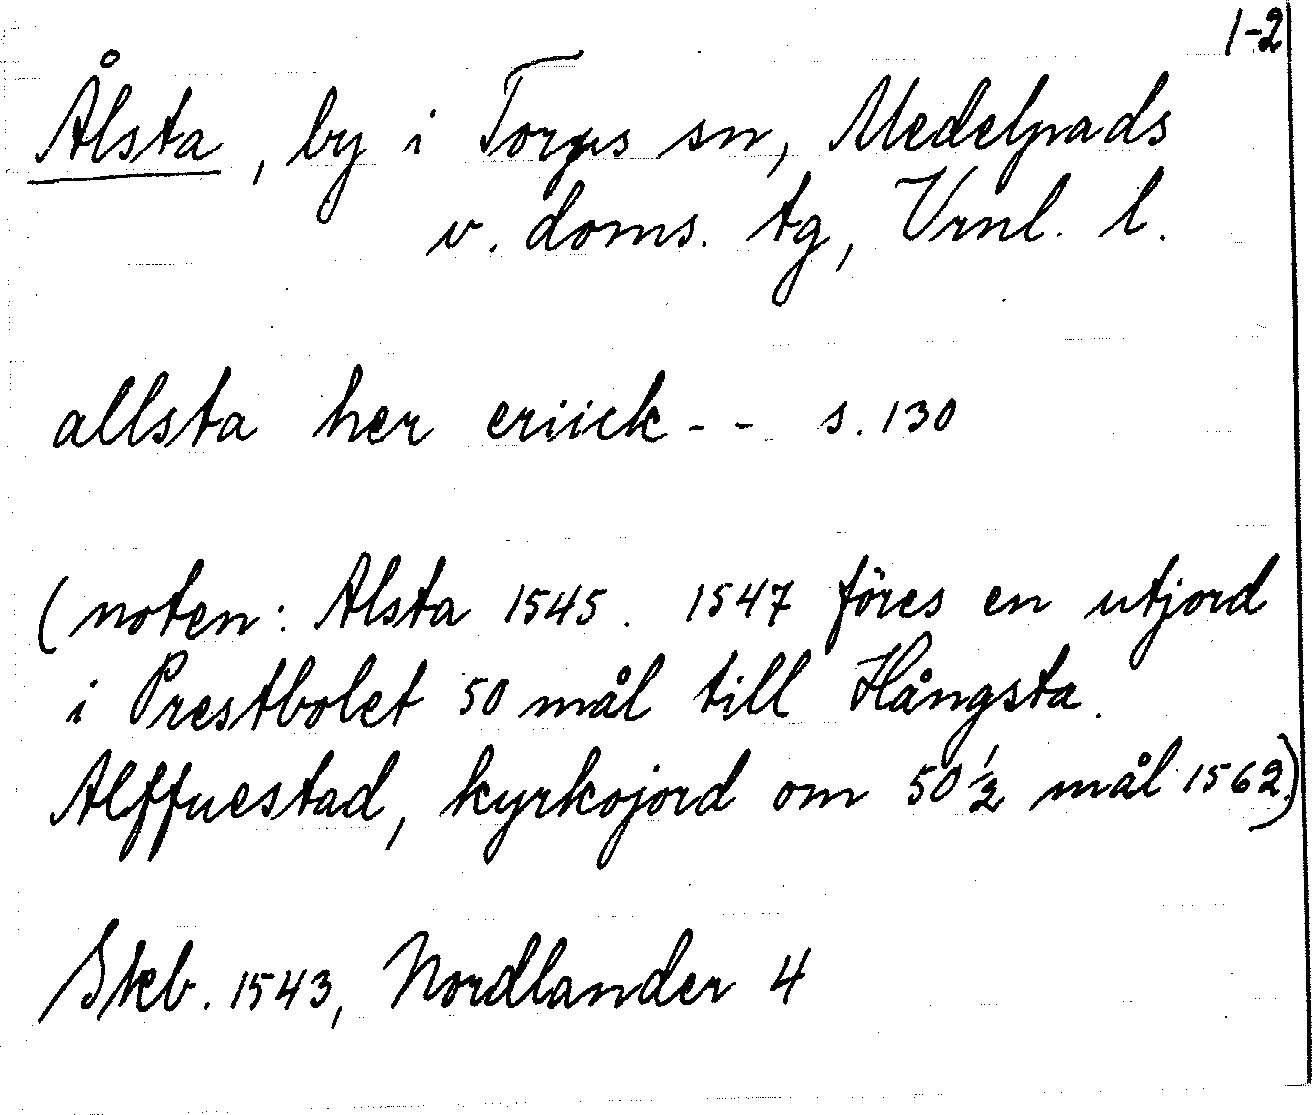 1-2
Ålsta, by i Torps sn, Medelpads
v. doms. tg, Vrnl. l.
allsta her eriick - - s. 130
(noten: Alsta 1545. 1547 föres en utjord
i Prestbolet 50 mål till Hångsta.
Alffuestad, kyrkojord om 50 1/2 mål 1562.)
Skb. 1543, Nordlander 4